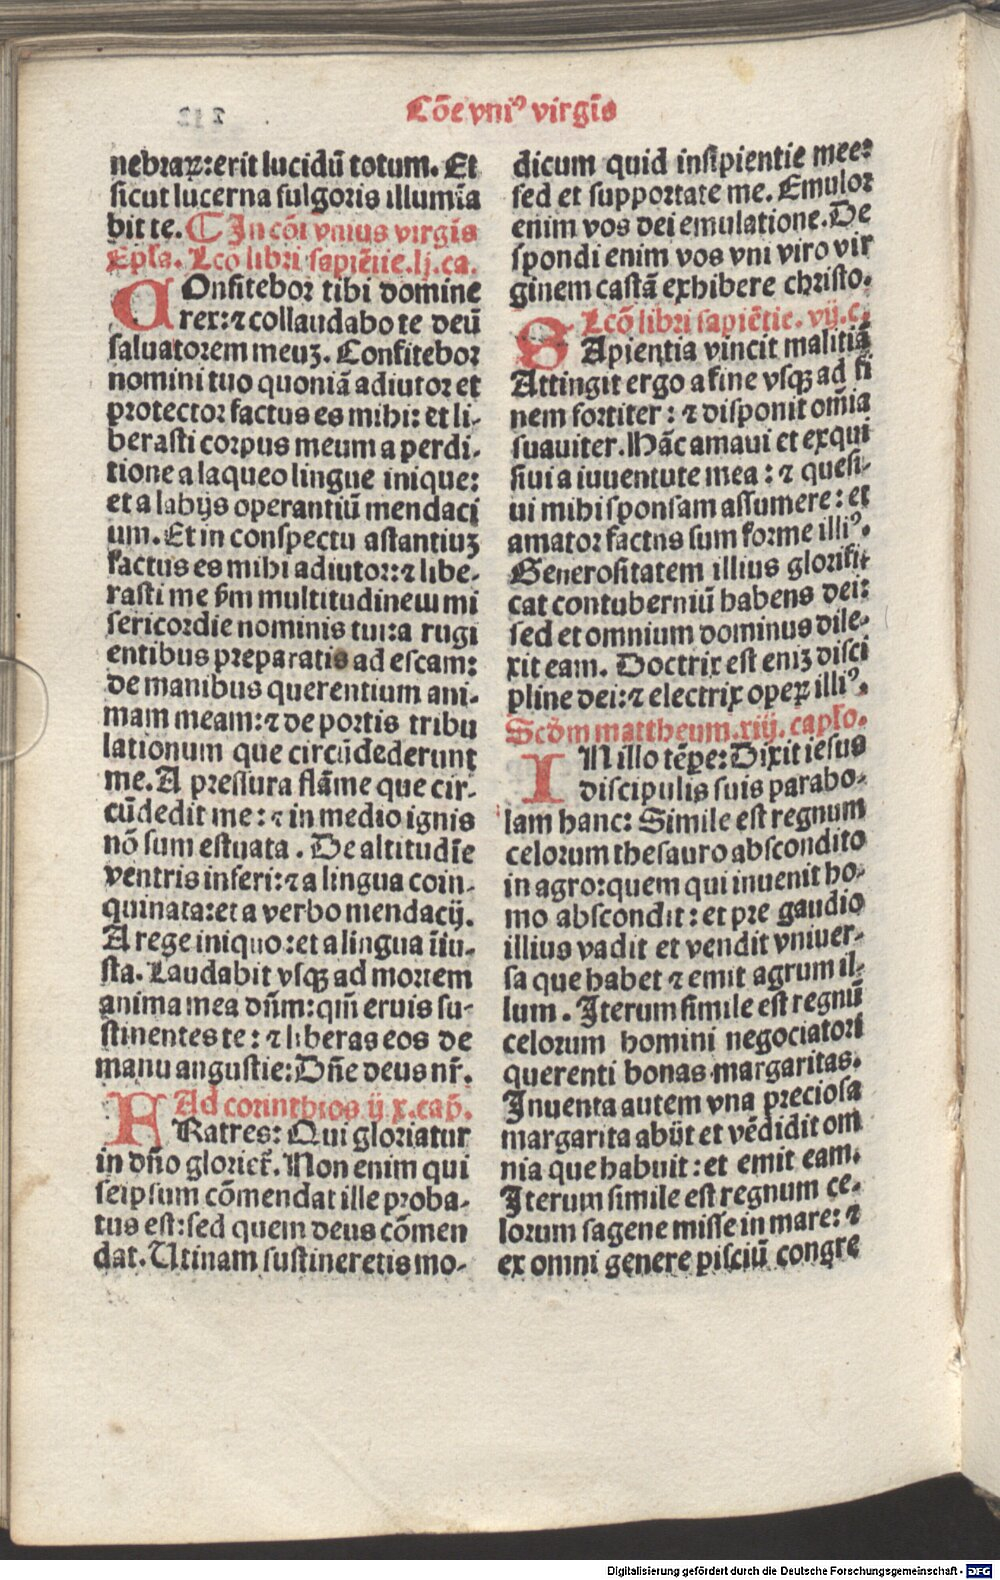 Cōe vniꝰ virgīs
nebraꝝ: erit lucidū totum. Et
sicut lucerna fulgoris illumīa
bit te. ⸿ In cōi vnius virgīs
Epl̄a. Lcō libri sapiētie. lj. ca.
COnfitebor tibi domine
rex: ⁊ collaudabo te deū
saluatorem meuʒ. Confitebor
nomini tuo quoniā adiutor et
protector factus es mihi: et li-
berasti corpus meum a perdi-
tione a laqueo lingue inique:
et a labijs operantiū mendaci
um. Et in conspectu astantiuʒ
factus es mihi adiutor: ⁊ libe-
rasti me ẜm multitudinem mi
sericordie nominis tui: a rugi
entibus preparatis ad escam:
de manibus querentium ani-
mam meam: ⁊ de portis tribu
lationum que circūdederunt
me. A pressura flāme que cir-
cūdedit me: ⁊ in medio ignis
nō sum estuata. De altitudīe
ventris inferi: ⁊ a lingua coin-
quinata: et a verbo mendacij.
A rege iniquo: et a lingua īiu-
sta. Laudabit vsqꝫ ad mortem
anima mea dn̄m: qm̄ eruis su-
stinentes te: ⁊ liberas eos de
manu angustie: Dn̄e deus nr̄.
Ad corinthios ij x. cap̄.
FRatres: Qui gloriatur
in dn̄o glorieꝉ. Non enim qui
seipsum cōmendat ille proba-
tus est: sed quem deus cōmen
dat. Utinam sustineretis mo-
dicum quid insipientie mee:
sed et supportate me. Emulor
enim vos dei emulatione. De
spondi enim vos vni viro vir
ginem castā exhibere christo.
Lcō libri sapiētie. vij. c.
SApientia vincit malitiā
Attingit ergo a fine vsqꝫ ad fi
nem fortiter: ⁊ disponit om̄ia
suauiter. Hāc amaui et exqui
siui a iuuentute mea: ⁊ quesi-
ui mihi sponsam assumere: et
amator factns sum forme illiꝰ.
Generositatem illius glorifi-
cat contuberniū habens dei:
sed et omnium dominus dile-
xit eam. Doctrix est eniʒ disci
pline dei: ⁊ electrix operꝝ illiꝰ.
Scd̄m mattheum. xiij. capl̄o.
IN illo tēpe: Dixit iesus
discipulis suis parabo-
lam hanc: Simile est regnum
celorum thesauro abscondito
in agro: quem qui inuenit ho-
mo abscondit: et pre gaudio
illius vadit et vendit vniuer-
sa que habet ⁊ emit agrum il-
lum. Iterum simile est regnū
celorum homini negociatori
querenti bonas margaritas.
Inuenta autem vna preciosa
margarita abijt et vēdidit om
nia que habuit: et emit eam.
Iterum simile est regnum ce-
lorum sagene misse in mare: ⁊
ex omni genere pisciū congre
Digitalisierung gefördert durch die Deutsche Forschungsgemeinschaft - DFG